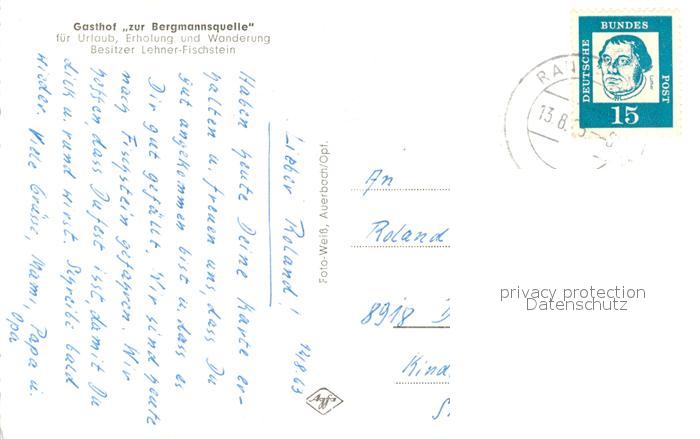 Gasthof „zur Bergmannsquelle"
für Urlaub, Erholung und Wanderung
Besitzer Lehner-Fischstein
14.8.63
Lieber Roland!
Haben heute Deine Karte er-
halten u. freuen uns, dass Du
gut angekommen bist u. dass es
Dir gut gefällt. Wir sind heute
nach Fischstein gefahren. Wir
hoffen, dass Du fest isst, damit Du
dick u. rund wirst. Schreibe bald
wieder. Viele Grüsse, Mami, Papa u.
Opa
Foto-Weiß, Auerbach/Opf.
Agfa
An
Roland
8918 D
Kind
DEUTSCHE
BUNDES
POST
Luther
15
13.8.
privacy protection
Datenschutz